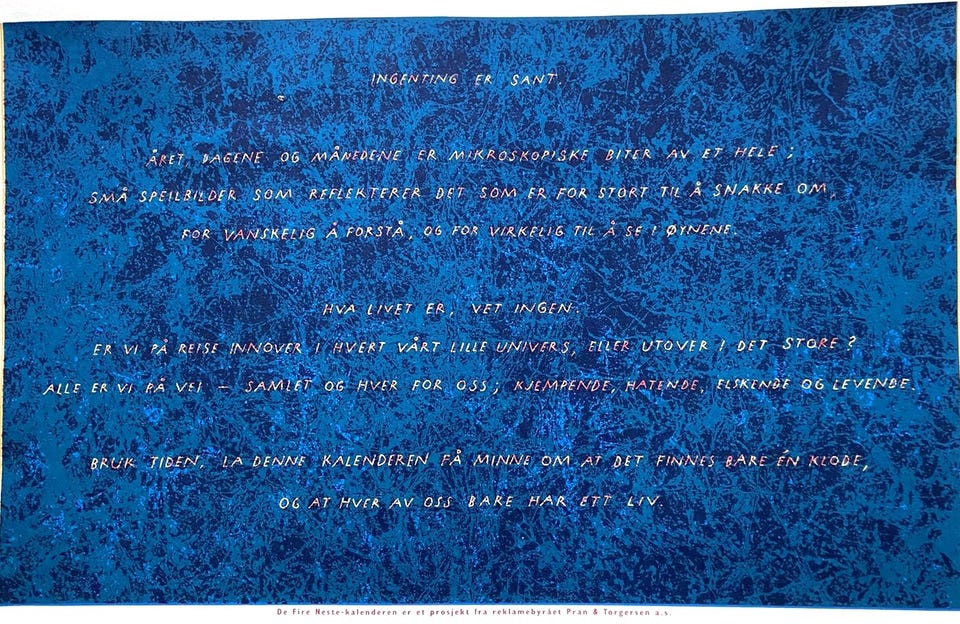 INGENTING ER SANT.
ÅRET, DAGENE OG MÅNEDENE ER MIKROSKOPISKE BITER AV ET HELE;
SMÅ SPEILBILDER SOM REFLEKTERER DET SOM ER FOR STORT TIL Å SNAKKE OM,
FOR VANSKELIG Å FORSTÅ, OG FOR VIRKELIG TIL Å SE I ØYNENE.
HVA LIVET ER, VET INGEN.
ER VI PÅ REISE INNOVER I HVERT VÅRT LILLE UNIVERS, ELLER UTOVER I DET STORE?
ALLE ER VI PÅ VEI – SAMLET OG HVER FOR OSS; KJEMPENDE, HATENDE, ELSKENDE OG LEVENDE.
BRUK TIDEN. LA DENNE KALENDEREN FÅ MINNE OM AT DET FINNES BARE ÉN KLODE,
OG AT HVER AV OSS BARE HAR ETT LIV.
De Fire Neste-kalenderen er et prosjekt fra reklamebyrået Pran & Torgersen a.s.